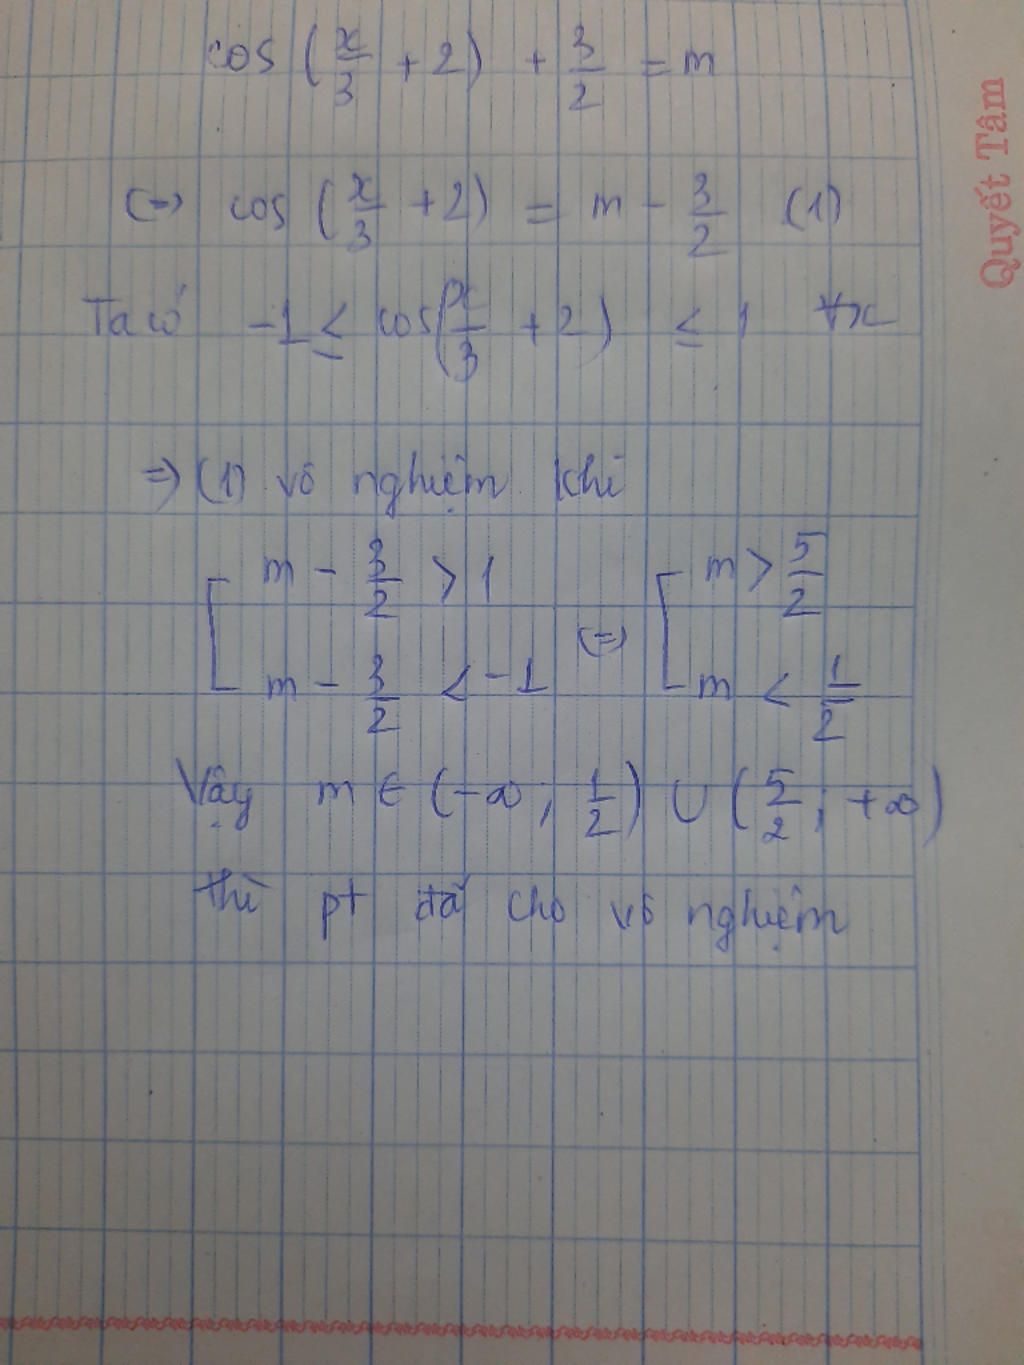 cos (x/3 + 2) + 3/2 = m
(=) cos (x/3 + 2) = m - 3/2 (1)
Ta có -1 ≤ cos(x/3 + 2) ≤ 1 ∀x
=> (1) vô nghiệm khi
[ m - 3/2 > 1 (=) [ m > 5/2
m - 3/2 < -1 m < 1/2
Vậy m ∈ (-∞; 1/2) ∪ (5/2; +∞)
thì pt đã cho vô nghiệm
Quyết Tâm